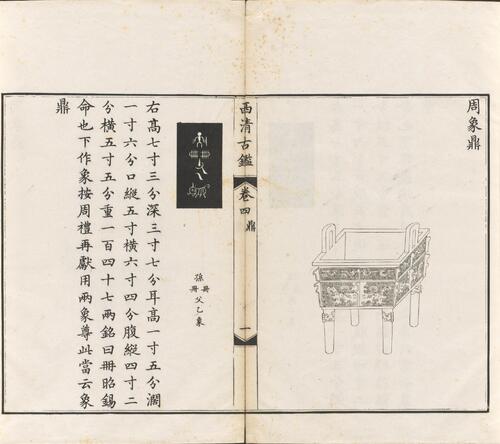 周象鼎
西清古鑑
卷四
鼎
一
孫
冊冊
父乙象
右高七寸三分深三寸七分耳高一寸五分濶
一寸六分口縱五寸橫六寸四分腹縱四寸二
分橫五寸五分重一百四十七兩銘曰冊昭錫
命也下作象按周禮再獻用兩象尊此當云象
鼎